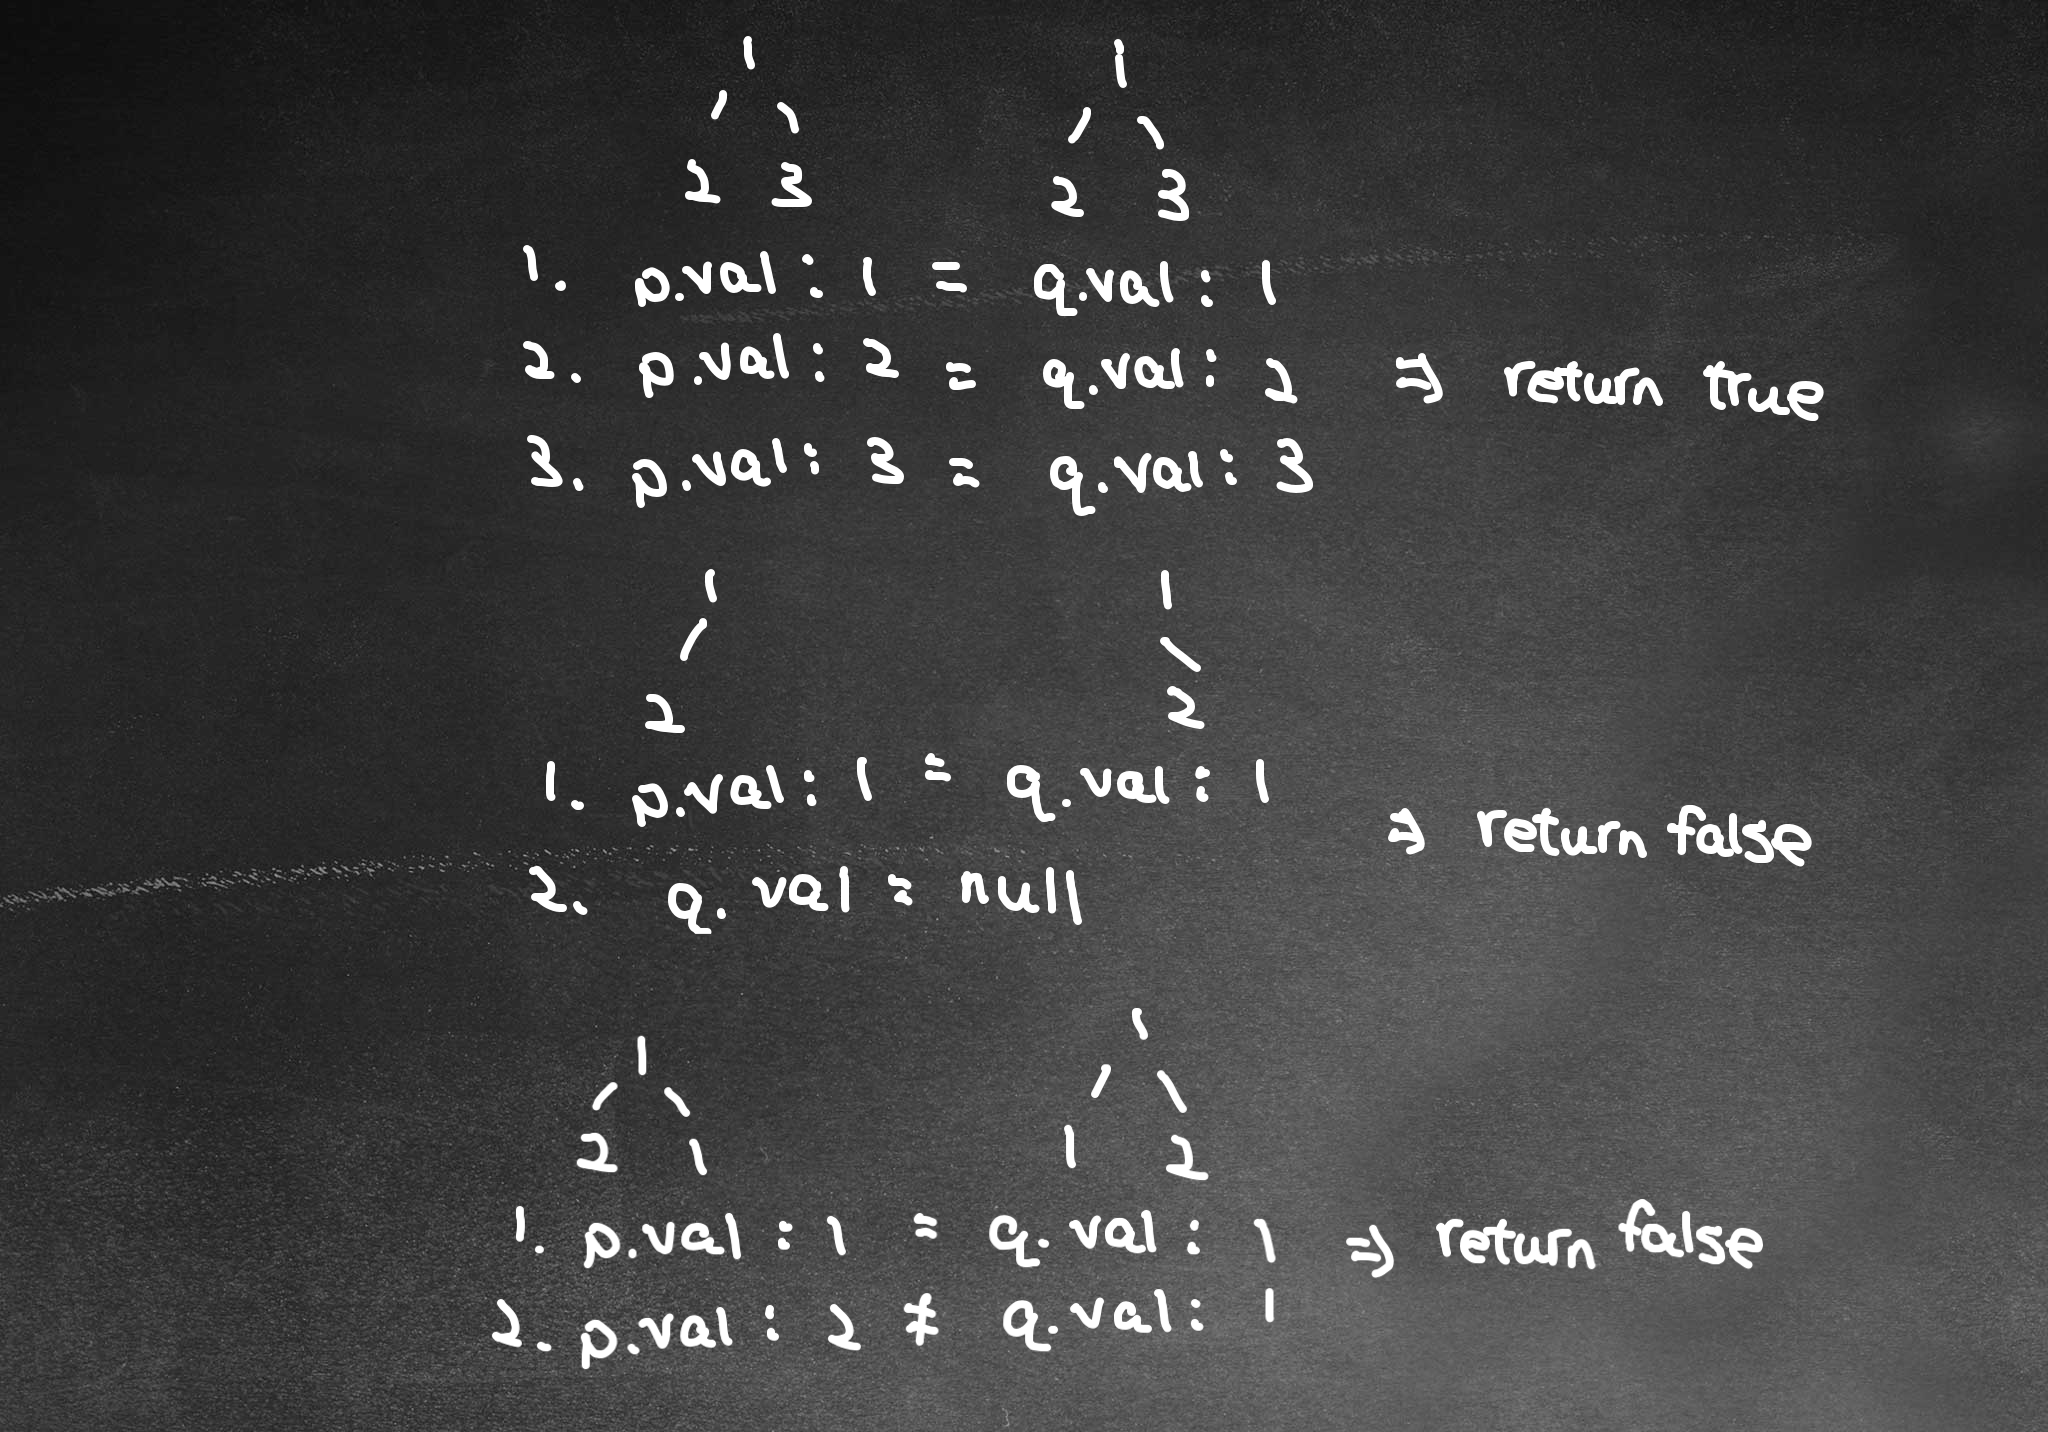 1 1
2 3 2 3
1. p.val : 1 = q.val : 1
2. p.val : 2 = q.val : 2 ⇒ return true
3. p.val : 3 = q.val : 3
1 1
2 2
1. p.val : 1 = q.val : 1
⇒ return false
2. q.val = null
1 1
2 1 1 2
1. p.val : 1 = q.val : 1 ⇒ return false
2. p.val : 2 ≠ q.val : 1